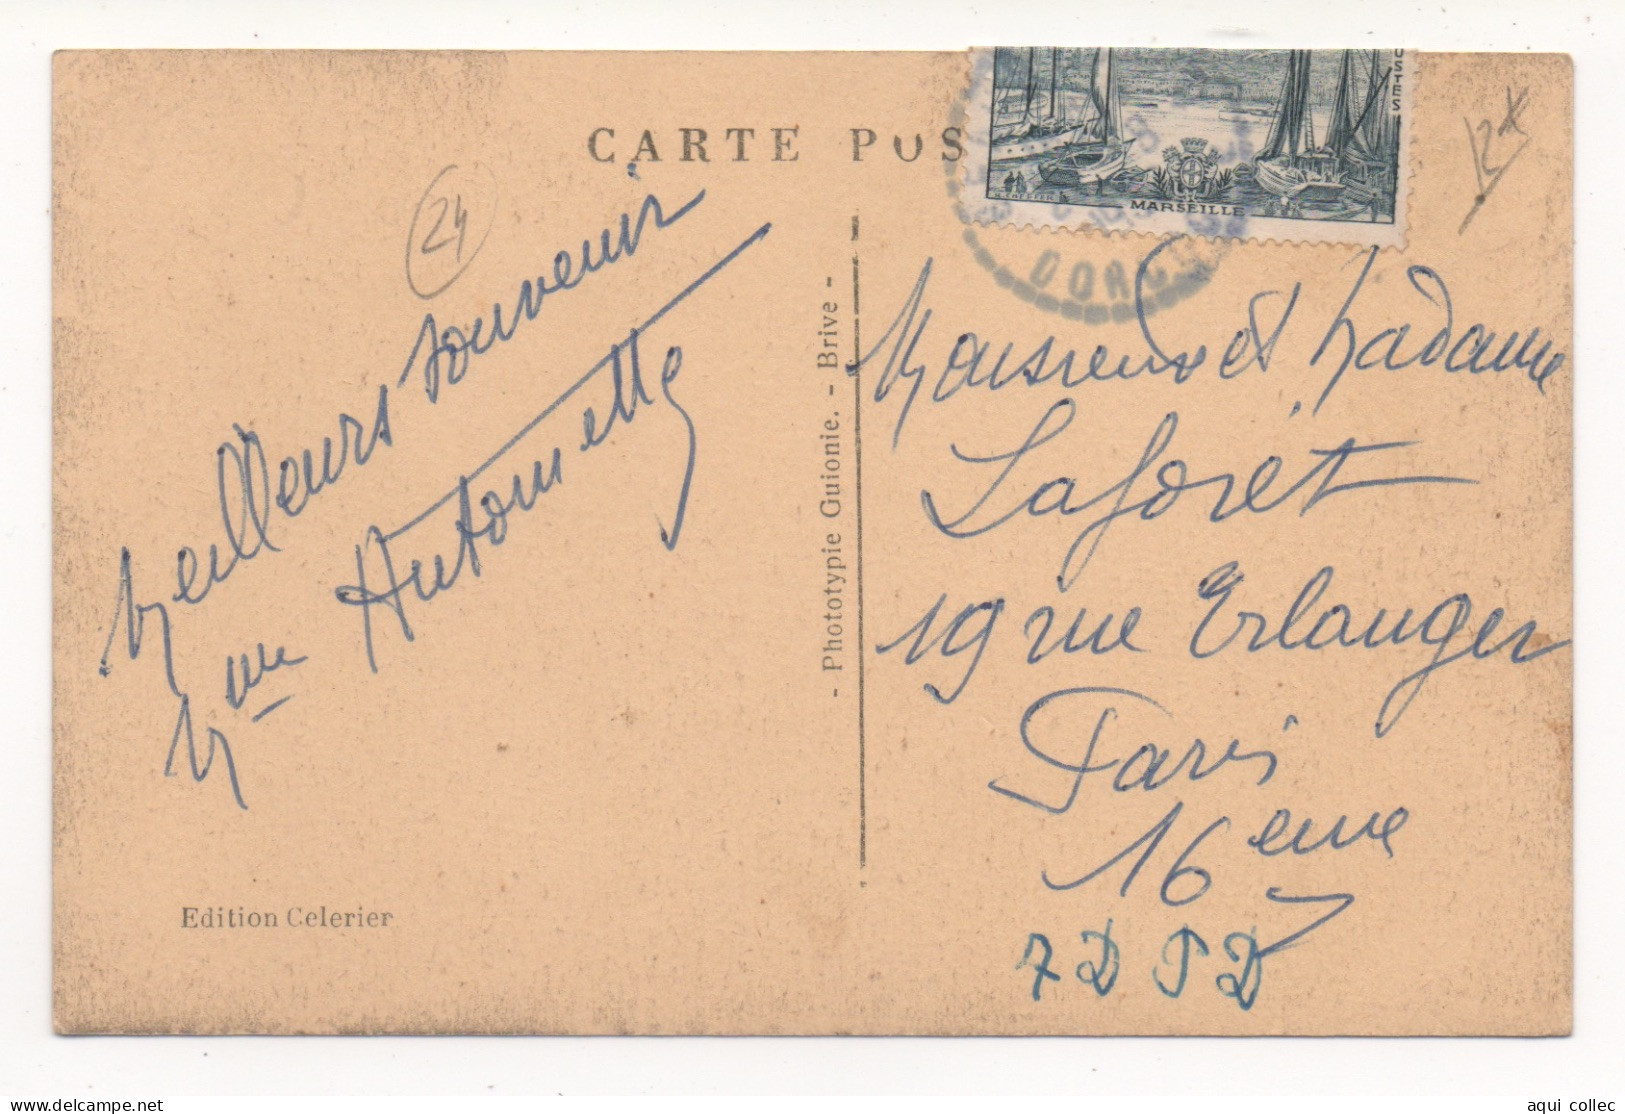 CARTE POS
24
Meilleurs souvenir
Mme Antoinette
Edition Celerier
- Phototypie Guionie. - Brive -
USTES
MARSEILLE
DORC
Monsieur et Madame
Laforêt
19 rue Erlanger
Paris
16eme
7DPD
www.delcampe.net
aqui collec